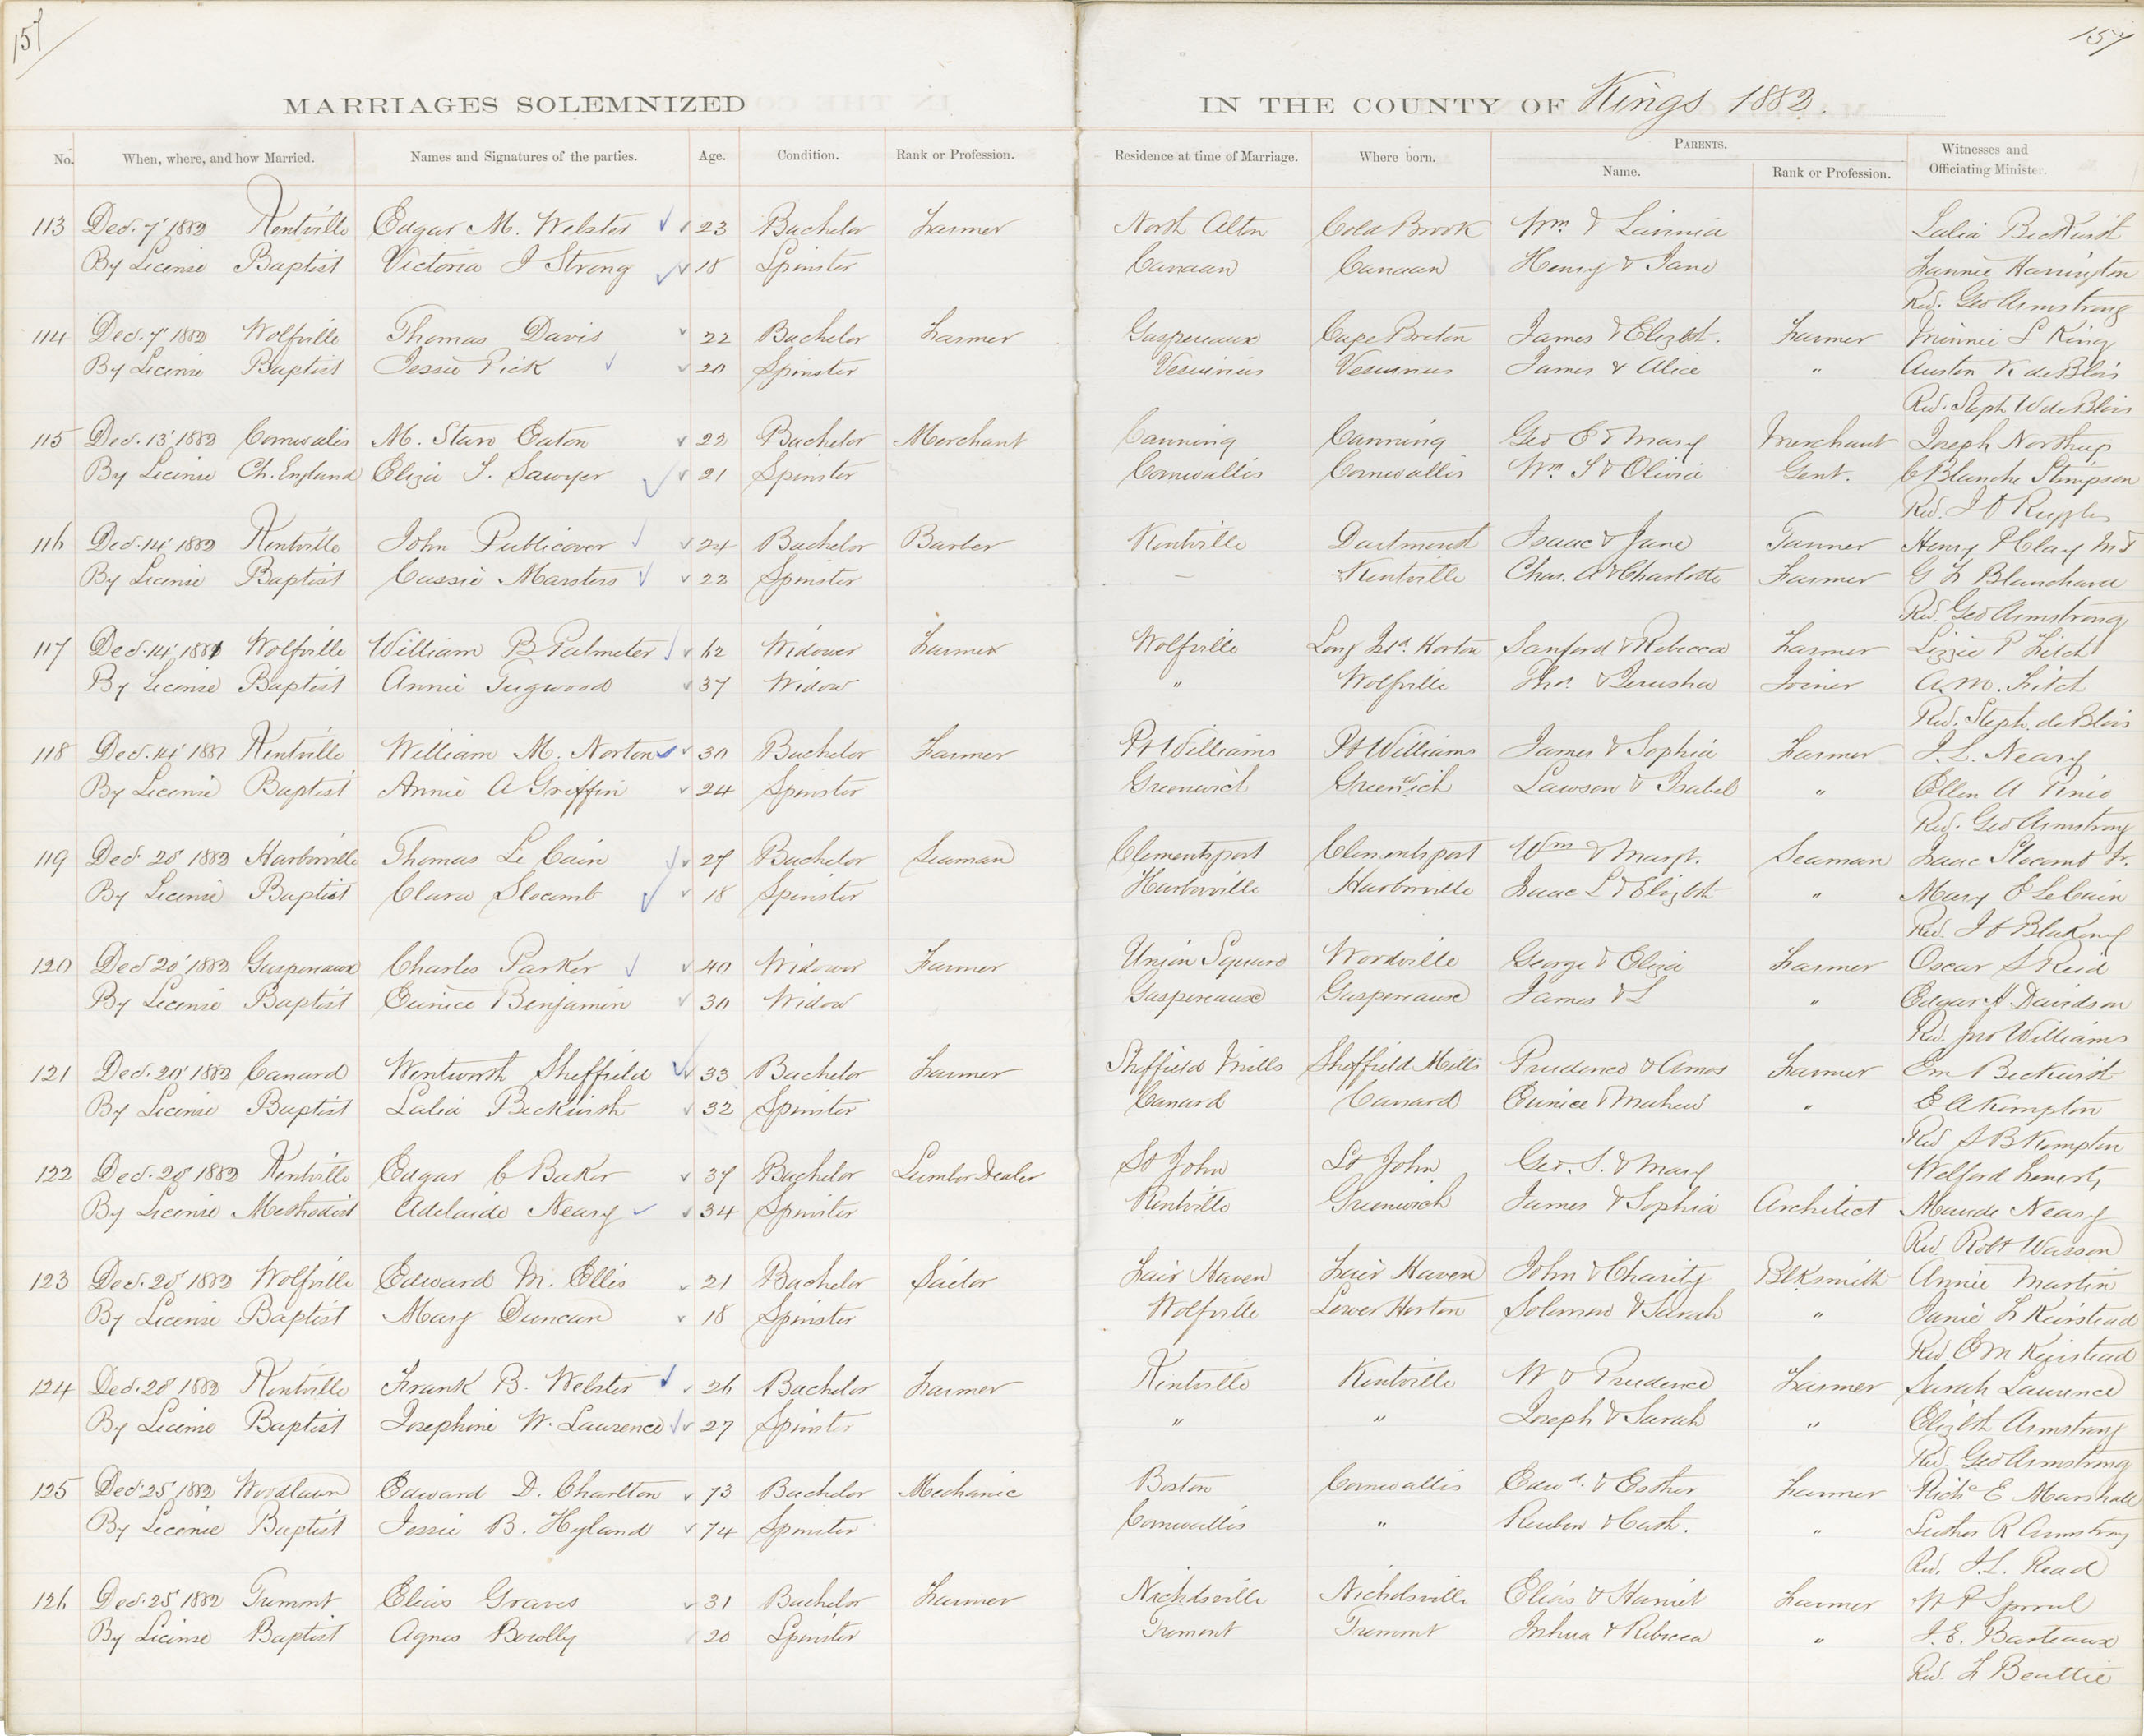 157
157
MARRIAGES SOLEMNIZED IN THE COUNTY OF Kings 1882.
No. When, where, and how Married. Names and Signatures of the parties. Age. Condition. Rank or Profession. Residence at time of Marriage. Where born. PARENTS. Name. Rank or Profession. Witnesses and Officiating Minister.
113 Dec. 7' 1882 Kentville Edgar M. Webster 23 Bachelor Farmer North Alton Cold Brook Wm & Lavinia Lalia Beckwith
By License Baptist Victoria J Strong 18 Spinster Canaan Canaan Henry & Jane Fannie Harrington
Rev. Geo Armstrong
114 Dec. 7" 1882 Wolfville Thomas Davis 22 Bachelor Farmer Gaspereaux Cape Breton James & Elizbt. Farmer Minnie S King
By License Baptist Jessie Pick 20 Spinster Vesuvius Vesuvius James & Alice " Austen K deBlois
Rev. Steph W deBlois
115 Dec. 13' 1882 Cornwallis M. Starr Eaton 22 Bachelor Merchant Canning Canning Geo E & Mary Merchant Joseph Northup
By License Ch. England Eliza S. Sawyer 21 Spinster Cornwallis Cornwallis Wm S & Olivia Gent. C Blanche Stimpson
Rev. J O Ruggles
116 Dec. 14' 1882 Kentville John Publicover 24 Bachelor Barber Kentville Dartmouth Isaac & Jane Tanner Henry Clay M D
By License Baptist Cassie Marsters 22 Spinster — Kentville Chas. A & Charlotte Farmer G H Blanchard
Rev. Geo Armstrong
117 Dec. 14' 1881 Wolfville William B Palmeter 62 Widower Farmer Wolfville Long Isd. Horton Sanford & Rebecca Farmer Lizzie P Fitch
By License Baptist Annie Tugwood 37 Widow " Wolfville Thos. & Jerusha Joiner A.M. Fitch
Rev. Steph. de Blois
118 Dec. 14' 1881 Kentville William M. Norton 30 Bachelor Farmer Pt Williams Pt Williams James & Sophia Farmer J. L. Neary
By License Baptist Annie A Griffin 24 Spinster Greenwich Greenwich Lawson & Isabel " Ellen A Pineo
Rev. Geo Armstrong
119 Dec. 20' 1882 Harborville Thomas Le Cain 27 Bachelor Seaman Clementsport Clementsport Wm & Margt. Seaman Isaac Slocomb Jr.
By License Baptist Clara Slocomb 18 Spinster Harborville Harborville Isaac L & Elizbth " Mary E LeCain
Rev. J O Blakeney
120 Dec 20' 1882 Gaspereaux Charles Parker 40 Widower Farmer Union Square Woodville George & Eliza Farmer Oscar S Reid
By License Baptist Eunice Benjamin 30 Widow Gaspereaux Gaspereaux James & L " Edgar H Davidson
Rev. Jno Williams
121 Dec. 20' 1882 Canard Wentworth Sheffield 33 Bachelor Farmer Sheffield Mills Sheffield Mills Prudence & Amos Farmer Em Beckwith
By License Baptist Lalia Beckwith 32 Spinster Canard Canard Eunice & Mahew " E A Kempton
Rev S B Kempton
122 Dec. 20' 1882 Kentville Edgar C Baker 37 Bachelor Lumber Dealer St John St John Geo. S. & Mary Welford
By License Methodist Adelaide Neary 34 Spinster Kentville Greenwich James & Sophia Architect Maude Neary
Rev. Robt Wasson
123 Dec. 20' 1882 Wolfville Edward M. Ellis 21 Bachelor Sailor Fair Haven Fair Haven John & Charity Blksmith Annie Martin
By License Baptist Mary Duncan 18 Spinster Wolfville Lower Horton Solomon & Sarah " Janie F Keirstead
Rev. E M Keirstead
124 Dec. 20' 1882 Kentville Frank B. Webster 26 Bachelor Farmer Kentville Kentville W & Prudence Farmer Sarah Laurence
By License Baptist Josephine W. Laurence 27 Spinster " " Joseph & Sarah " Elizbth Armstrong
Rev. Geo Armstrong
125 Dec' 25' 1882 Woodlawn Edward D. Charlton 73 Bachelor Mechanic Boston Cornwallis Edwd. & Esther Farmer Richd E Marshall
By License Baptist Jessie B. Hyland 74 Spinster Cornwallis " Reuben & Cath. " Luther R Armstrong
Rev. J. L. Read
126 Dec. 25' 1882 Tremont Elias Graves 31 Bachelor Farmer Nicholsville Nicholsville Elias & Harriet Farmer W P Sproul
By License Baptist Agnes Bowlby 20 Spinster Tremont Tremont Joshua & Rebecca " J. E. Barteaux
Rev. F Beattie